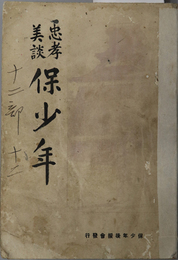 孝
美談
保少年
十二部 十二
保少年後援會發行